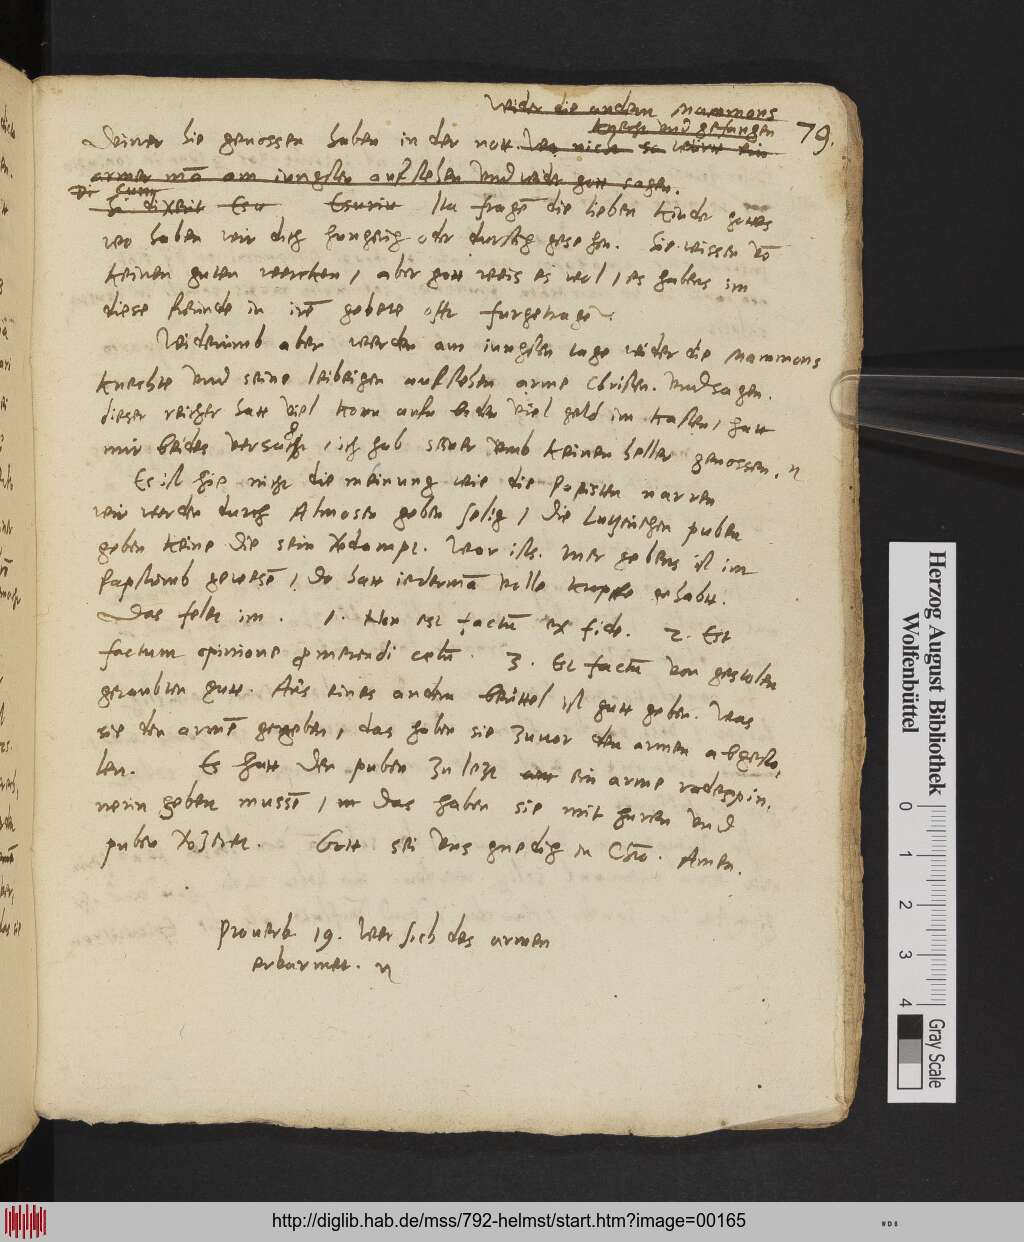 Wider die andern Mammons
knecht und gefangen
79.
Deiner hie genossen haben in der nott. Wen nicht so wirtt ein
armer mā am iungsten aufstehen Vnd wider gott sagen.
Si dixerit Esu Esuriit Ita fragē die lieben kinder gottes
wo haben wir dich hungerig oder durstig gesehen. Sie wissen vō
keinen guten wercken, aber gott weis es wol, es habens im
diese freunde in irē gebete offt furgetragē.
Widerumb aber werden am iungsten tage wider die Mammons
knechte Vnd seine leibeigen aufstehen arme Christen. Vnd sagen.
dieser reicher hatt viel korn aufm boden viel geld im kasten, hatt
mir beides versagt, ich hab seiner umb keinen heller genossen.
Es ist hie nicht die meinung wie die Papisten narren
wir werden durch Almosen geben selig, die Lutherischen puben
geben keine die sein verdampt. War ists. mer gebens ist im
papstumb gewesē, Do hatt iedermā volle
gehabt.
Das felet im. 1. Non est factū ex fide. 2. Est
factum opinione promerendi celū. 3. Est factū von gestolen
geraubten gutt. Aus eines andern beuttel ist gutt geben. Was
sie den armē gegeben, das haben sie zuuor den armen abgesto,
len. Es hatt den puben zu letzt ein arme radespin,
nerin geben mussē, Das haben sie mit huren Vnd
puben verzeret. Gott sei Vns gnedig in Chro. Amen.
Prouerb. 19. Wer sich des armen
erbarmet.
Herzog August Bibliothek
Wolfenbüttel
0 1 2 3 4
Gray Scale
http://diglib.hab.de/mss/792-helmst/start.htm?image=00165